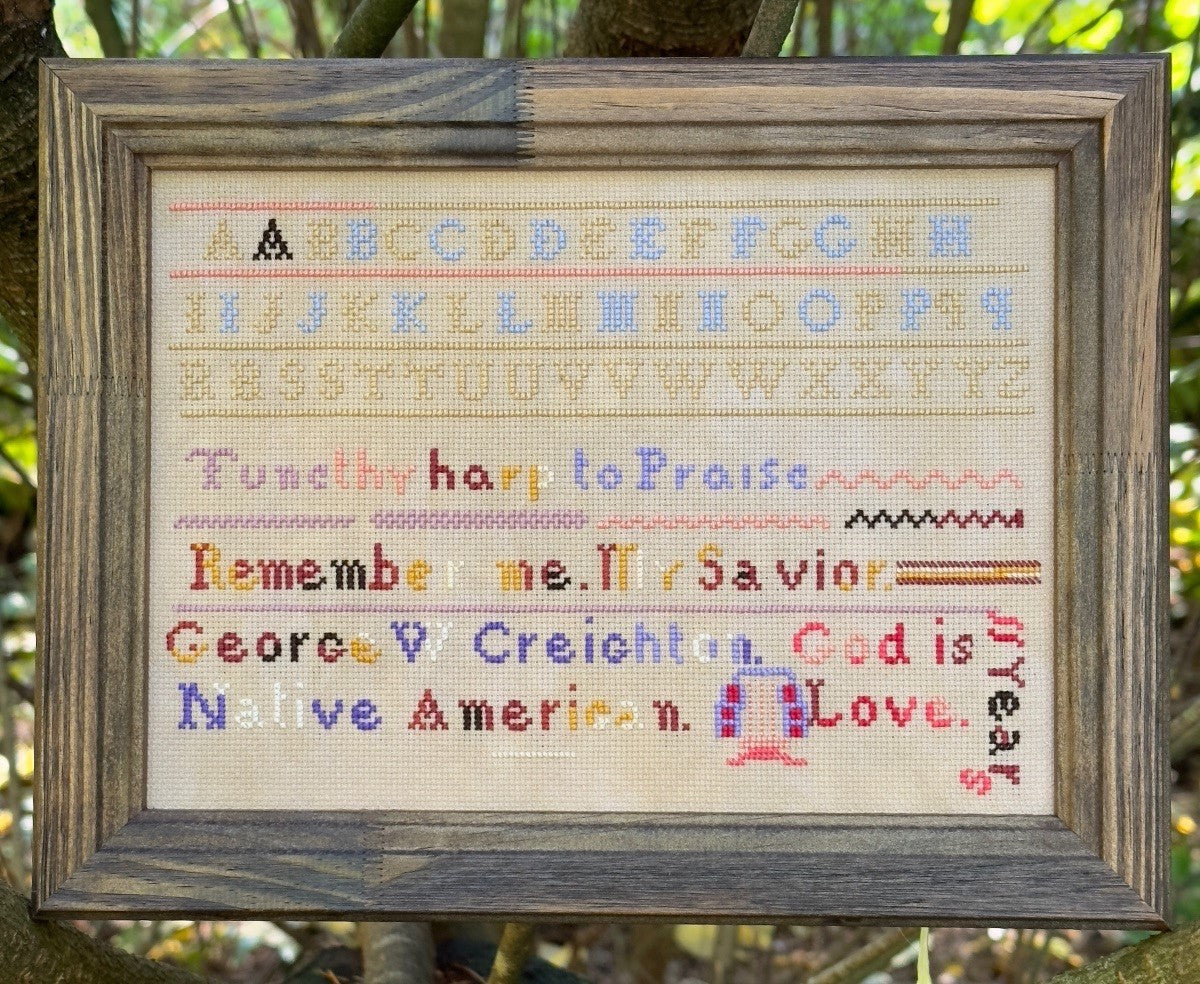 A A B B C C D D E E F F G G H H
I I J J K K L L M M I I O O P P q q
R R S S T T U U V V W W X X Y Y Z
Tune thy harp to Praise
Remember me. My Savior.
George W Creighton. God is
Native American. Love.
Years